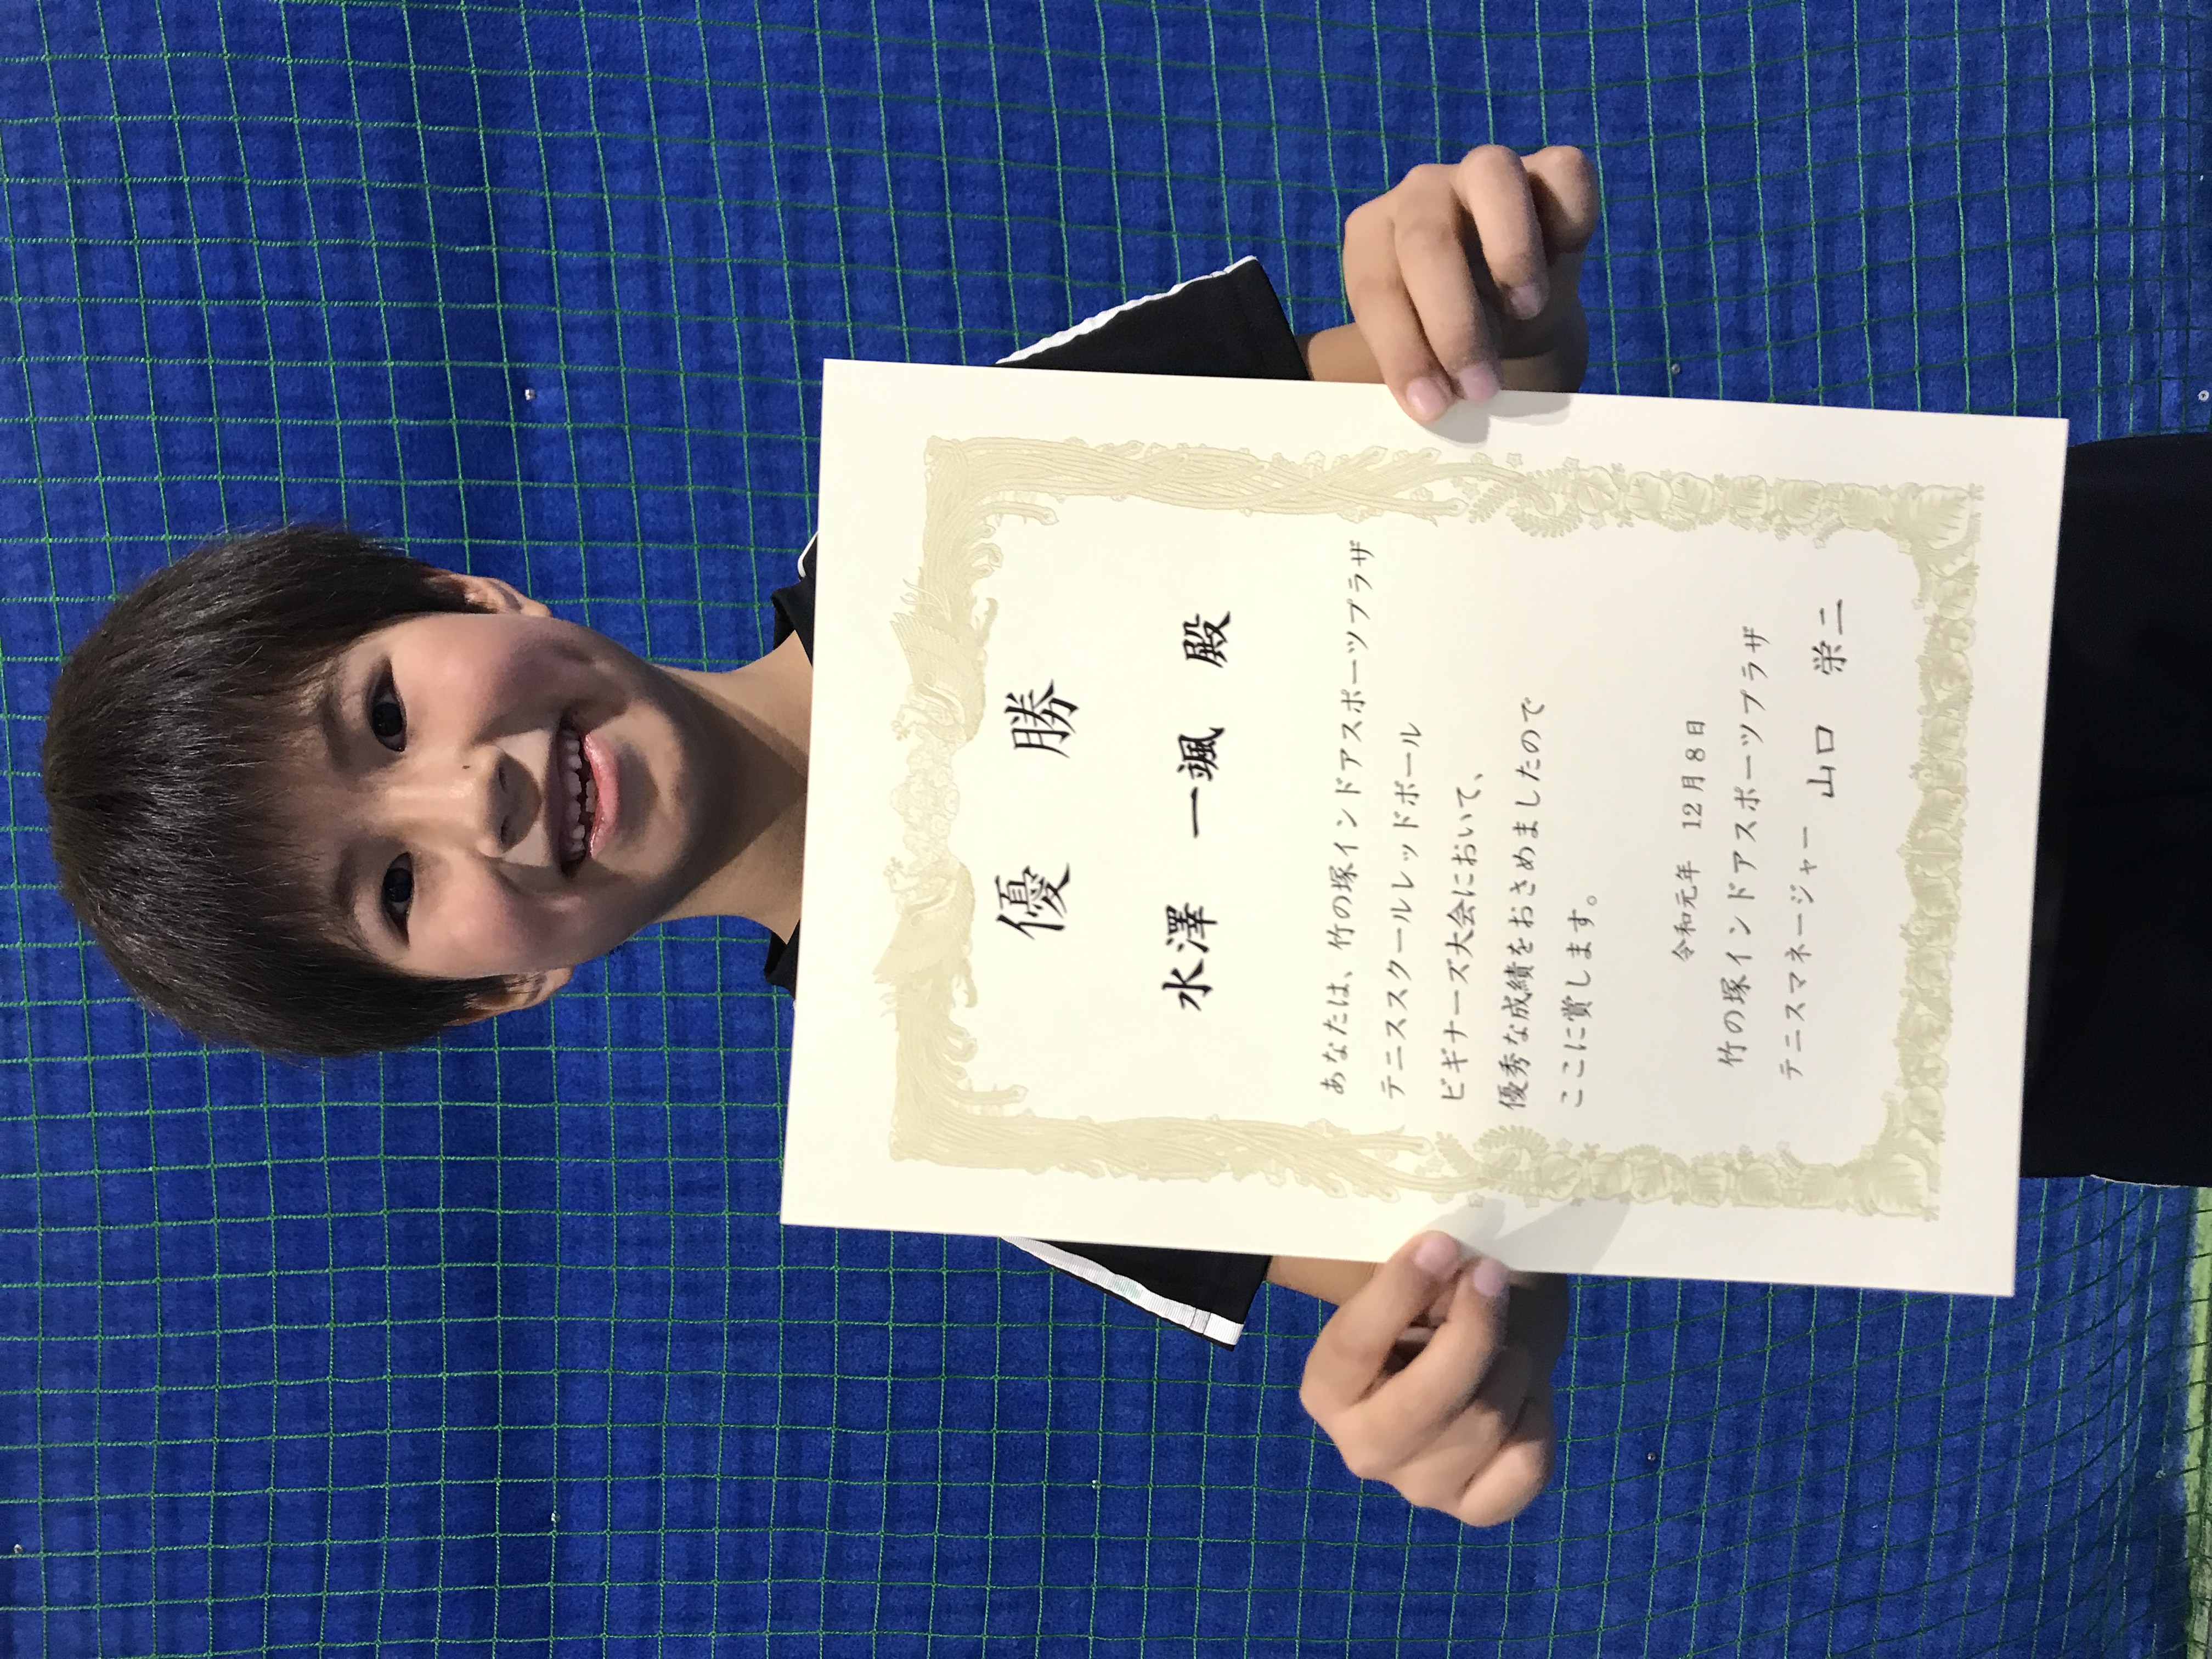 優 勝
水澤 一颯 殿
あなたは、竹の塚インドアスポーツプラザ
テニススクールレッドボール
ビギナーズ大会において、
優秀な成績をおさめましたので
ここに賞します。
令和元年 12月8日
竹の塚インドアスポーツプラザ
テニスマネージャー 山口 栄二